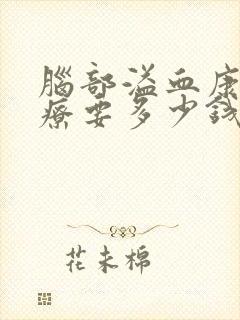 腦部溢血康
療要多少錢
花未棉